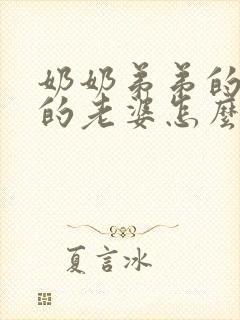 奶奶弟弟的
的老婆怎麼
夏言冰